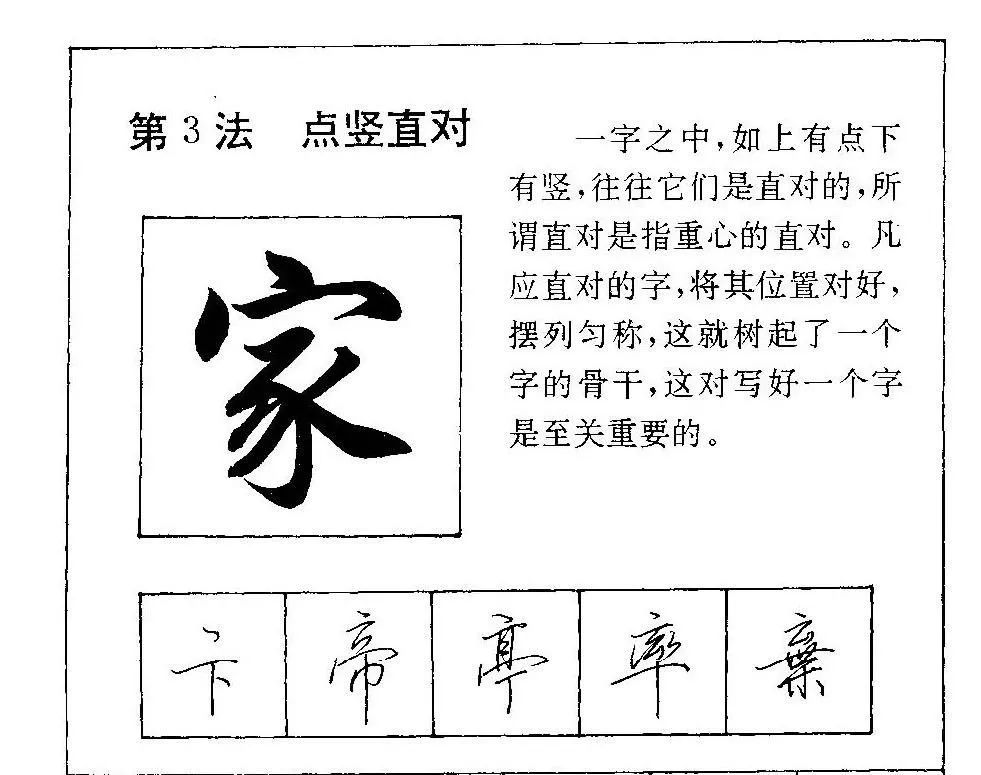 第3法 点竖直对
一字之中，如上有点下
有竖，往往它们是直对的，所
谓直对是指重心的直对。凡
应直对的字，将其位置对好，
摆列匀称，这就树起了一个
字的骨干，这对写好一个字
是至关重要的。
家
卞 帝 亭 率 棄